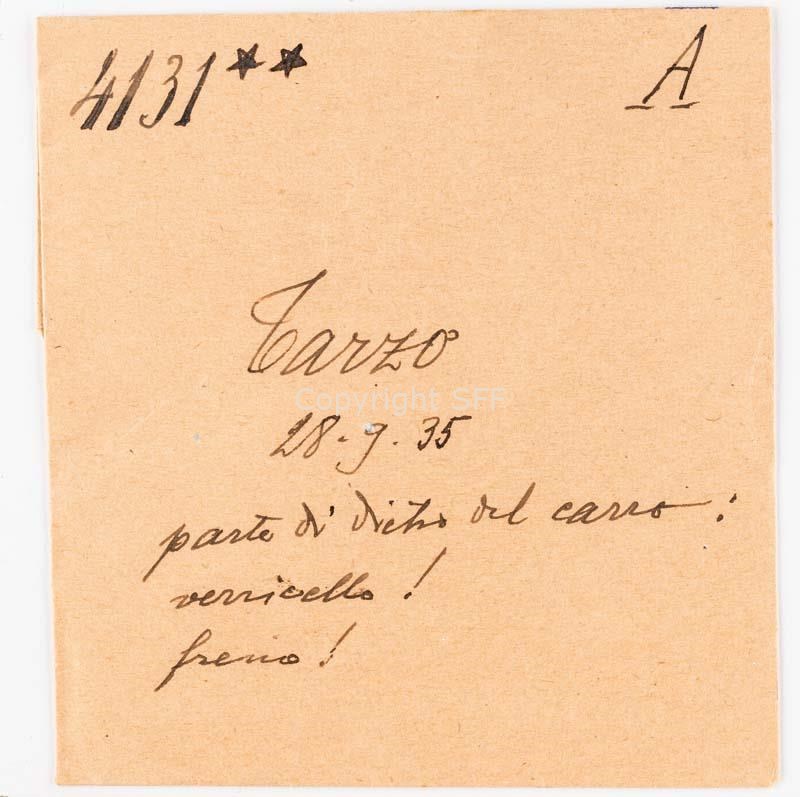 4131** A
Tarzo
Copyright SFF
28.9.35
parte di dietro del carro:
verricello!
freno!